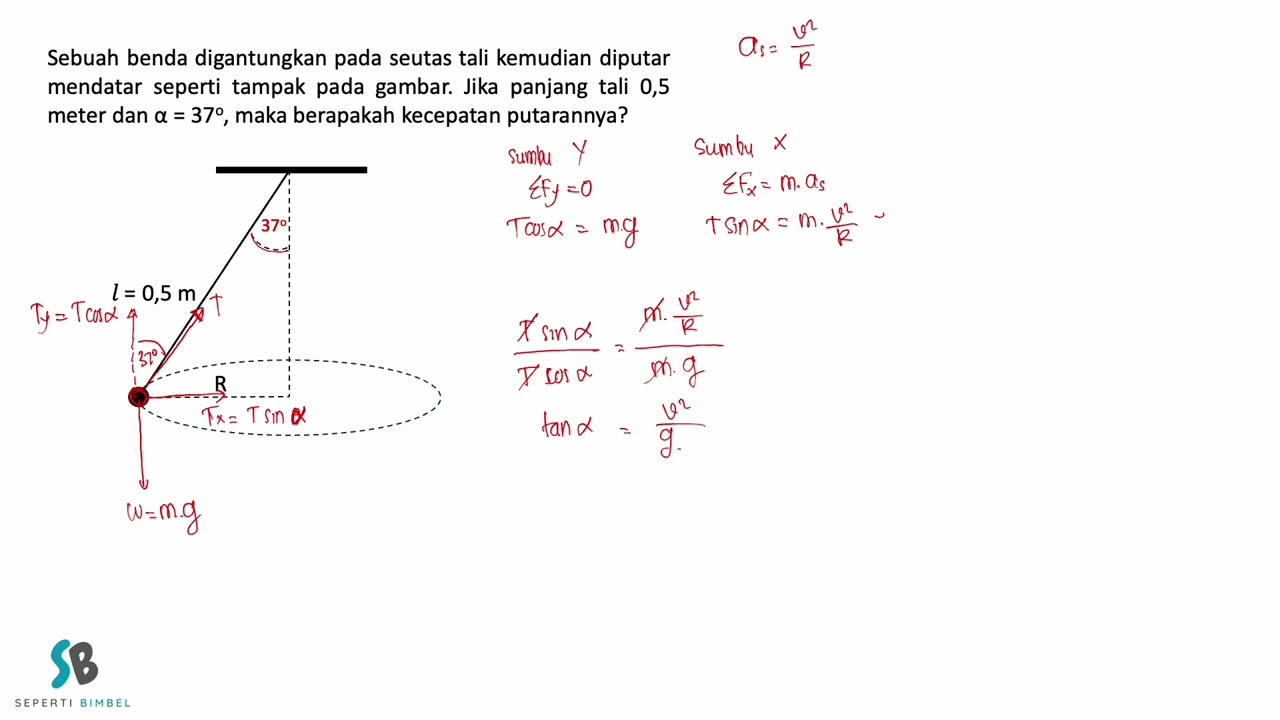 Sebuah benda digantungkan pada seutas tali kemudian diputar
mendatar seperti tampak pada gambar. Jika panjang tali 0,5
meter dan α = 37°, maka berapakah kecepatan putarannya?
as = v²/R
Sumbu Y
ΣFy = 0
T cos α = m.g
Sumbu X
ΣFx = m.as
T sin α = m. v²/R
37°
l = 0,5 m
T
Ty = T cos α
37°
R
Tx = T sin α
w = m.g
T sin α / T cos α = m. v²/R / m. g
tan α = v² / g.
SB
SEPERTI BIMBEL